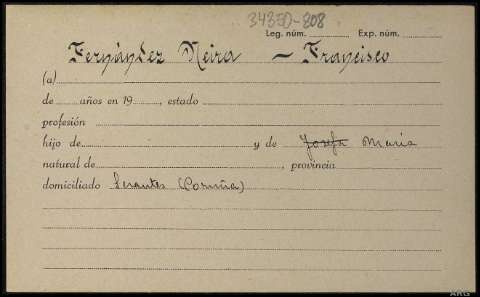 34350-808
Leg. núm. Exp. núm.
Fernández Neira — Francisco
(a)
de años en 19 , estado
profesión
hijo de y de Josefa María
natural de , provincia
domiciliado Serantes (Coruña)
ARG